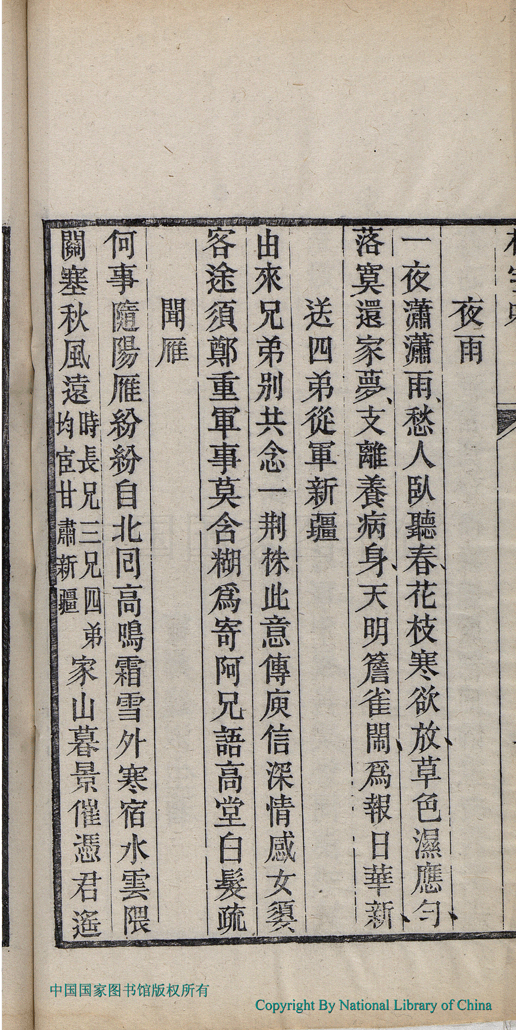 夜雨
一夜瀟瀟雨愁人臥聽春花枝寒欲放草色濕應勻
落寞還家夢支離養病身天明簷雀鬧爲報日華新
送四弟從軍新疆
由來兄弟別共念一荆株此意傳庾信深情感女嬃
客途須鄭重軍事莫含糊爲寄阿兄語高堂白髮疏
聞雁
何事隨陽雁紛紛自北囘高鳴霜雪外寒宿水雲隈
關塞秋風遠時長兄三兄四弟均宦甘肅新疆家山暮景催憑君遙
中国国家图书馆版权所有
Copyright By National Library of China